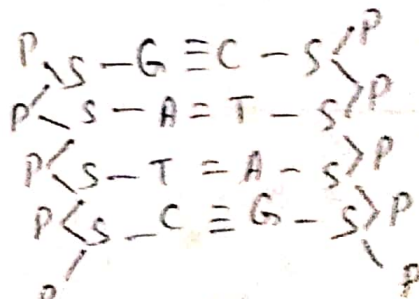 P S - G ≡ C - S P
P S - A = T - S P
P S - T = A - S P
P S - C ≡ G - S P
P P